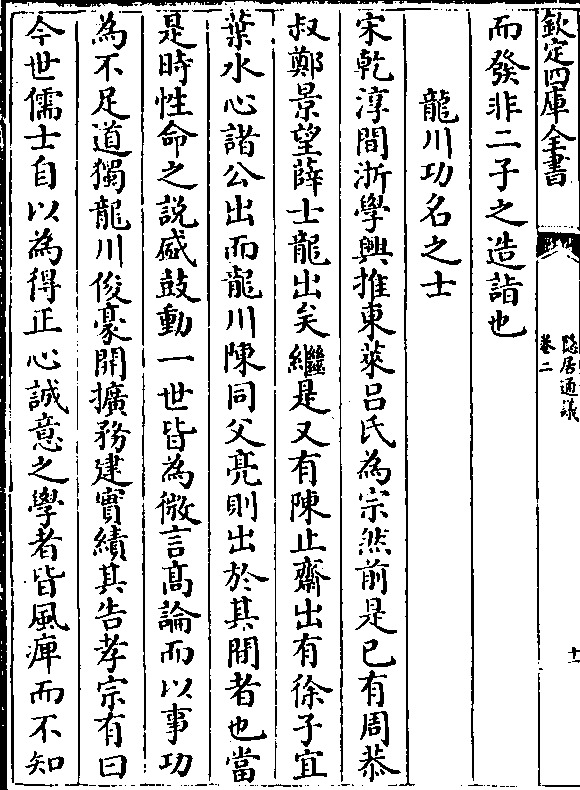 欽定四庫全書
隱居通議
卷二
十一
而發非二子之造詣也
龍川功名之士
宋乾淳間浙學興推東萊吕氏為宗然前是已有周恭
叔鄭景望薛士龍出矣繼是又有陳止齋出有徐子宜
葉水心諸公出而龍川陳同父亮則出於其間者也當
是時性命之説盛鼓動一世皆為微言髙論而以事功
為不足道獨龍川俊豪開擴務建實績其告孝宗有曰
今世儒士自以為得正心誠意之學者皆風痺而不知